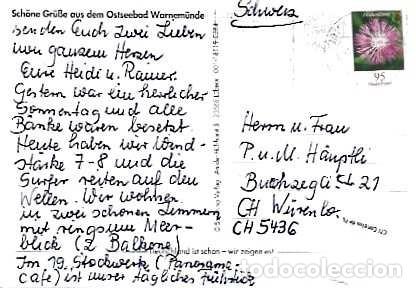 Schöne Grüße aus dem Ostseebad Warnemünde
senden Euch zwei Lieben
von ganzem Herzen
Eure Heidi u. Rainer.
Gestern war ein herrlicher
Sonnentag und alle
Bänke waren besetzt.
Heute haben wir Wind-
stärke 7-8 und die
Surfer reiten auf den
Wellen. Wir wohnen
in zwei schönen Zimmern
mit rings um Meer-
blick (2 Balkone)
Im 19. Stockwerk (Panorama-
Cafe) ist unser tägliches Frühstück
Schweiz
95
Herrn u. Frau
P. u. M. Häuptli
21
CH
CH 5436
Deutschland ist schön – wir zeigen es!
todocoleccion.net